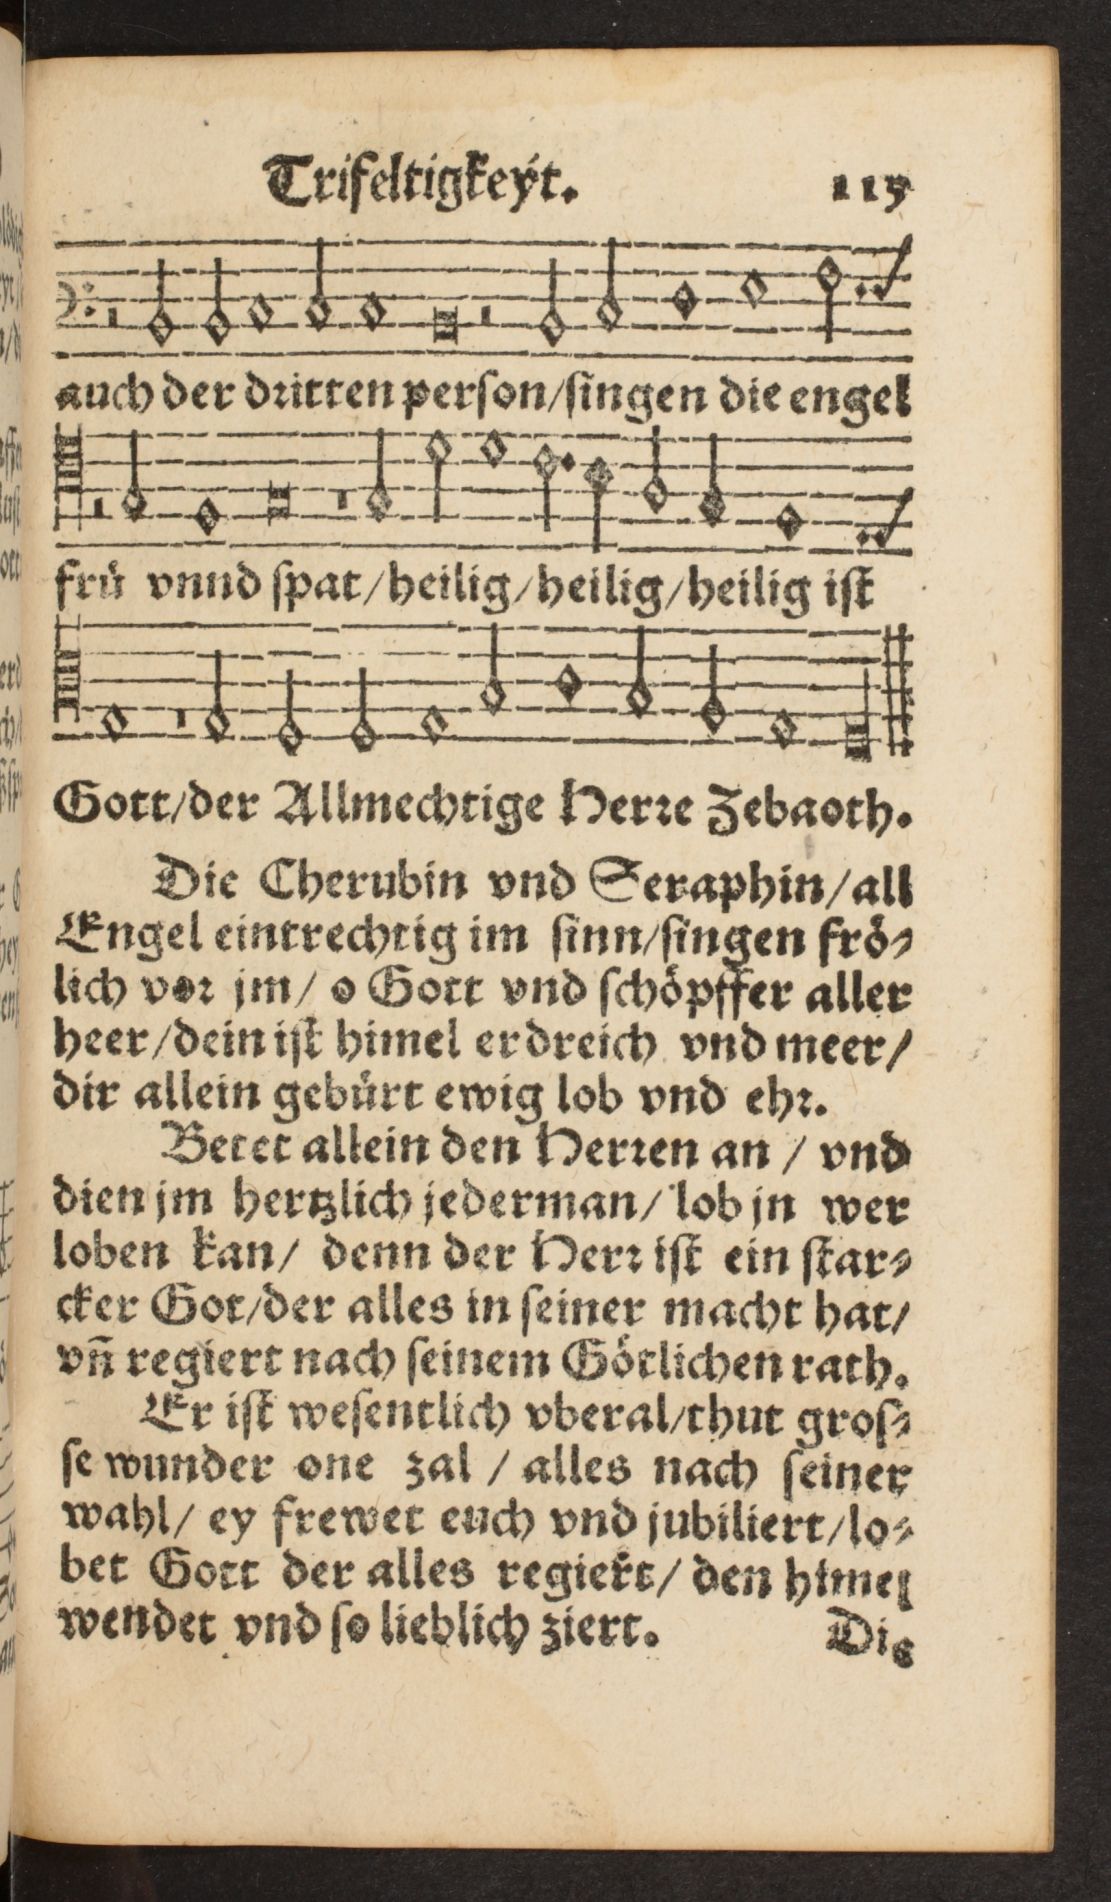 Trifeltigkeyt. 115
auch der dritten person/singen die engel
frü vnnd spat/heilig/heilig/heilig ist
Gott/der Allmechtige Herre Zebaoth.
Die Cherubin vnd Seraphin/all
Engel eintrechtig im sinn/singen frö-
lich vor jm/ o Gott vnd schöpffer aller
heer/dein ist himel erdreich vnd meer/
dir allein gebürt ewig lob vnd ehr.
Betet allein den Herren an / vnd
dien jm hertzlich jederman/ lob jn wer
loben kan/ denn der Herr ist ein star-
cker Got/der alles in seiner macht hat/
vñ regiert nach seinem Götlichen rath.
Er ist wesentlich vberal/thut gros-
se wunder one zal / alles nach seiner
wahl/ ey frewet euch vnd jubiliert/lo-
bet Gott der alles regiert/ den himel
wendet vnd so lieblich ziert. Die